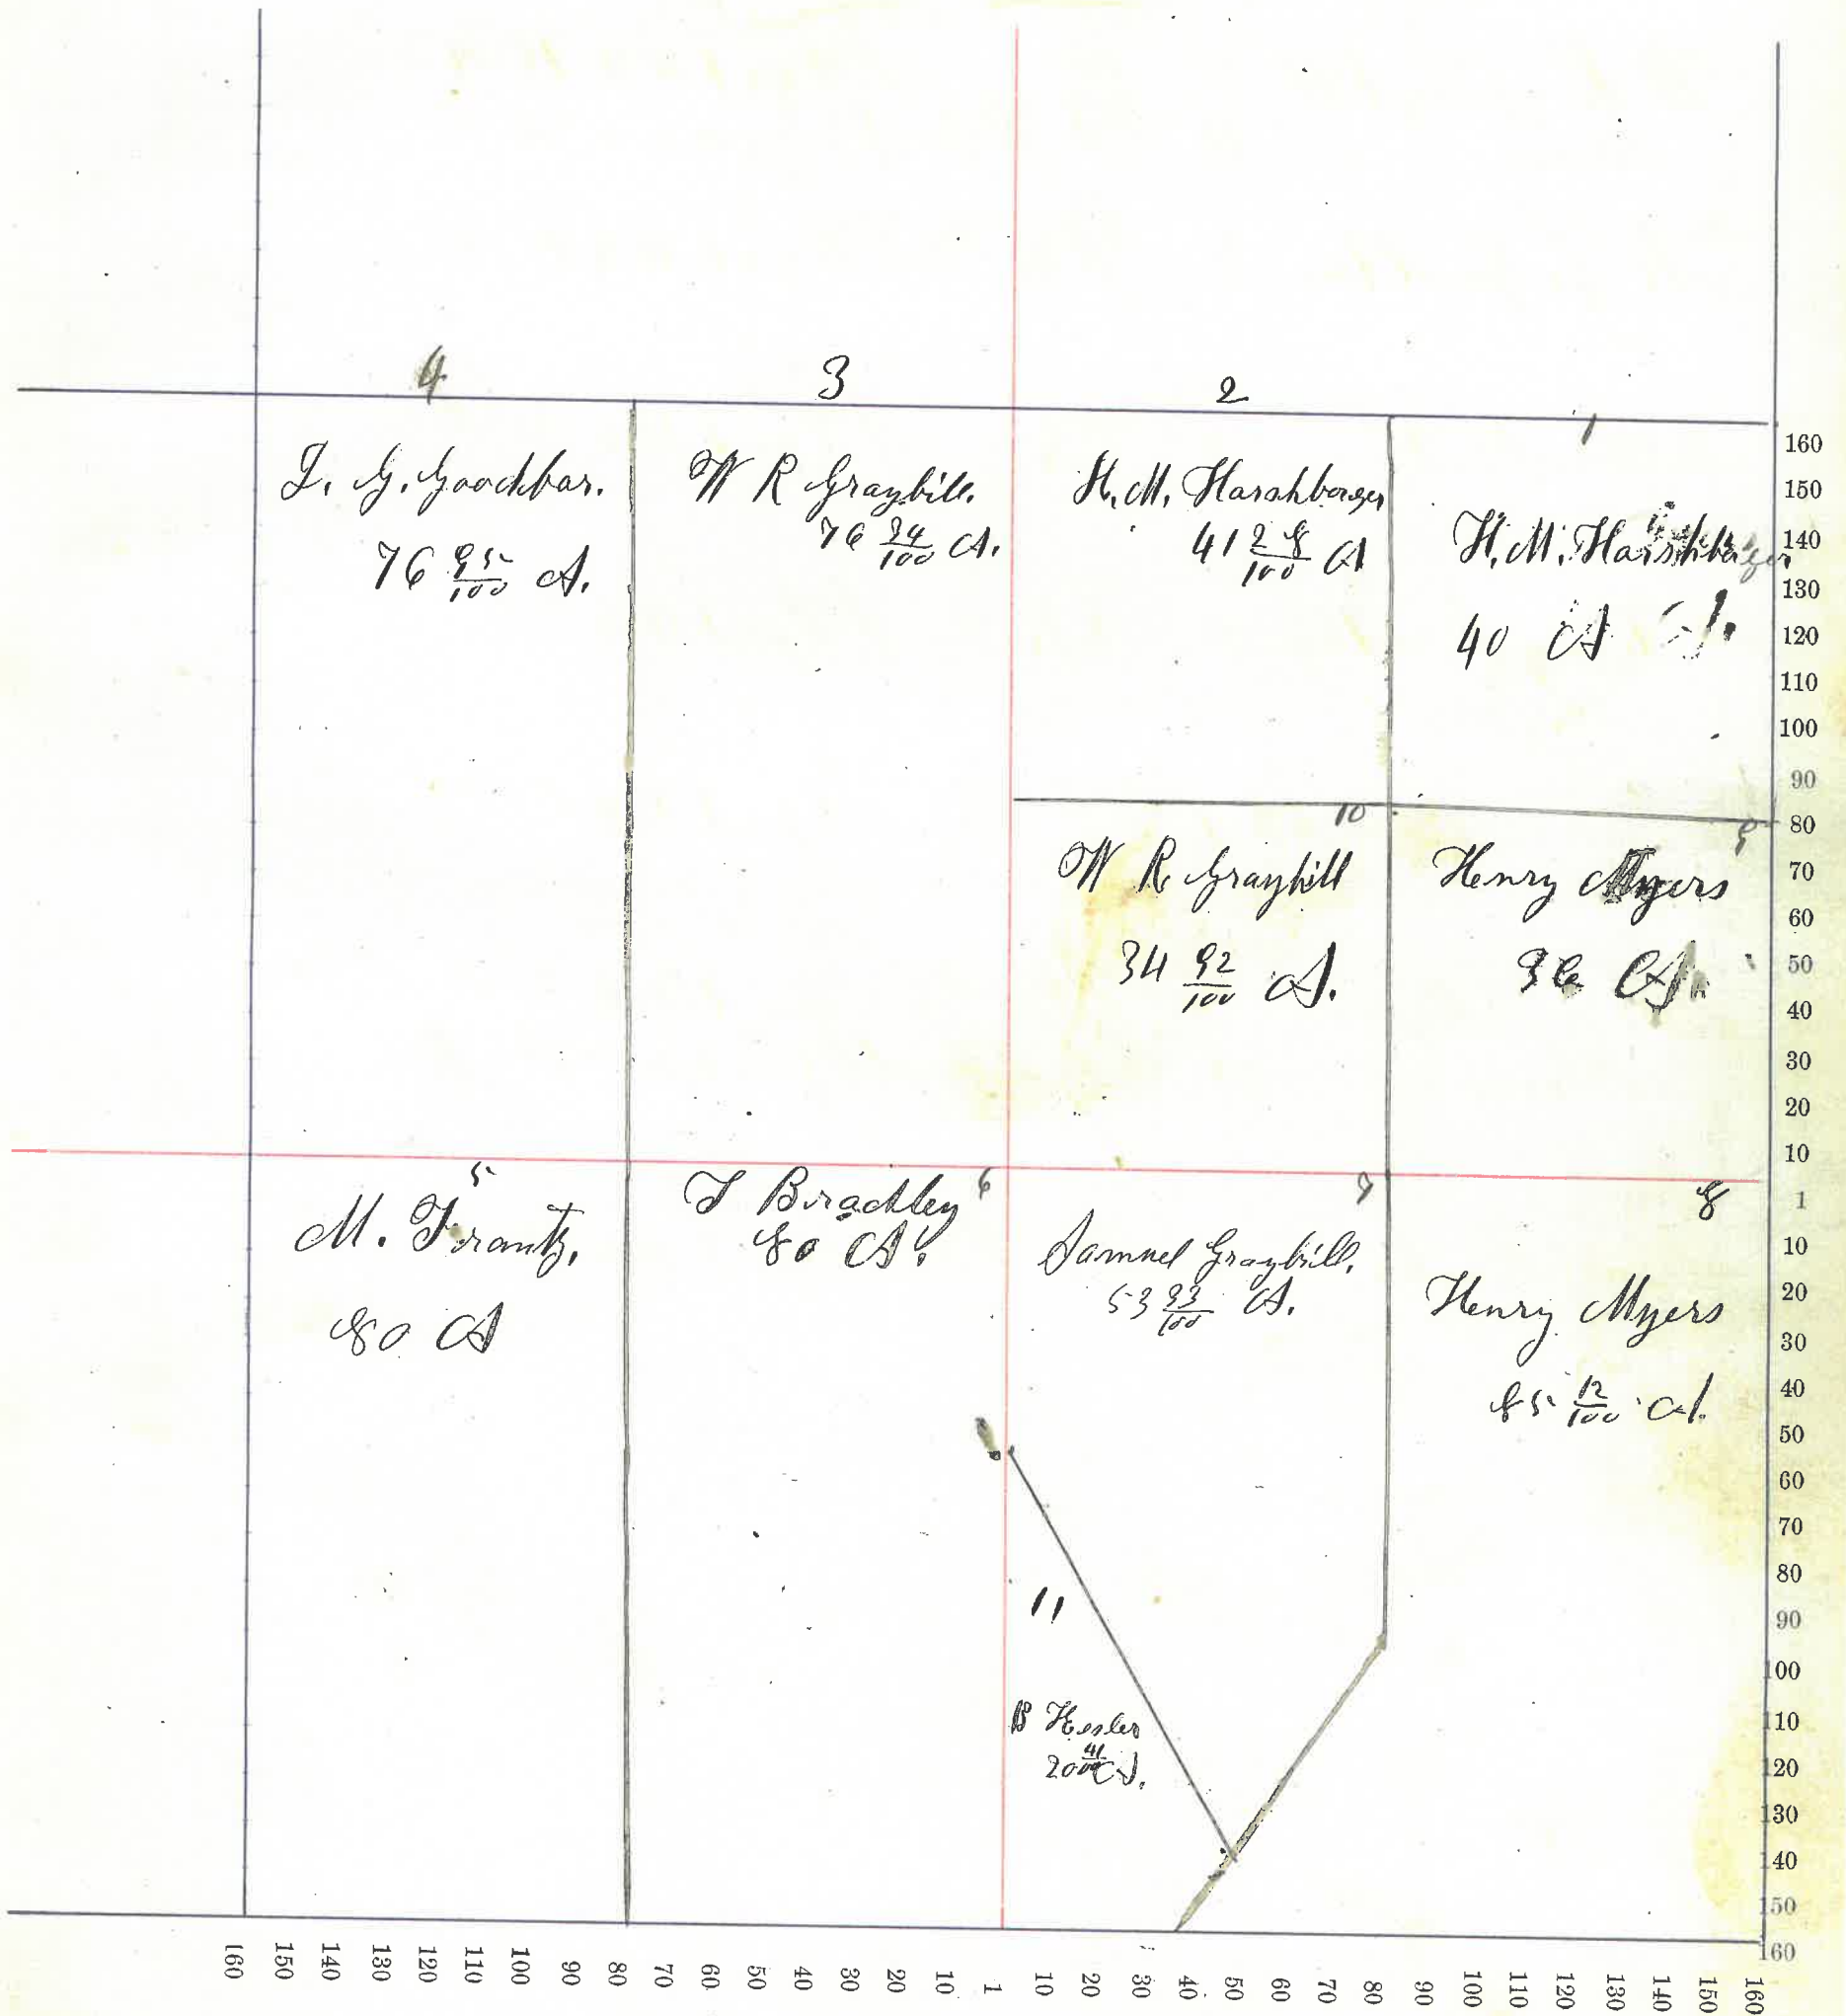 4
3
2
1
J. G. Goodbar.
76 95/100 A.
W R Graybill.
76 24/100 A.
H. M. Harshberger
41 28/100 A
H. M. Harshbarger
40 A
10
W R Graybill
34 92/100 A.
9
Henry Myers
36 A.
5
M. Frantz.
80 A
6
J Brackley
80 A.
7
Samuel Graybill.
53 93/100 A.
8
Henry Myers
85 12/100 A.
11
B Hesler
20 41/100 A.
160
150
140
130
120
110
100
90
80
70
60
50
40
30
20
10
1
10
20
30
40
50
60
70
80
90
100
110
120
130
140
150
160
160 150 140 130 120 110 100 90 80 70 60 50 40 30 20 10 1 10 20 30 40 50 60 70 80 90 100 110 120 130 140 150 160